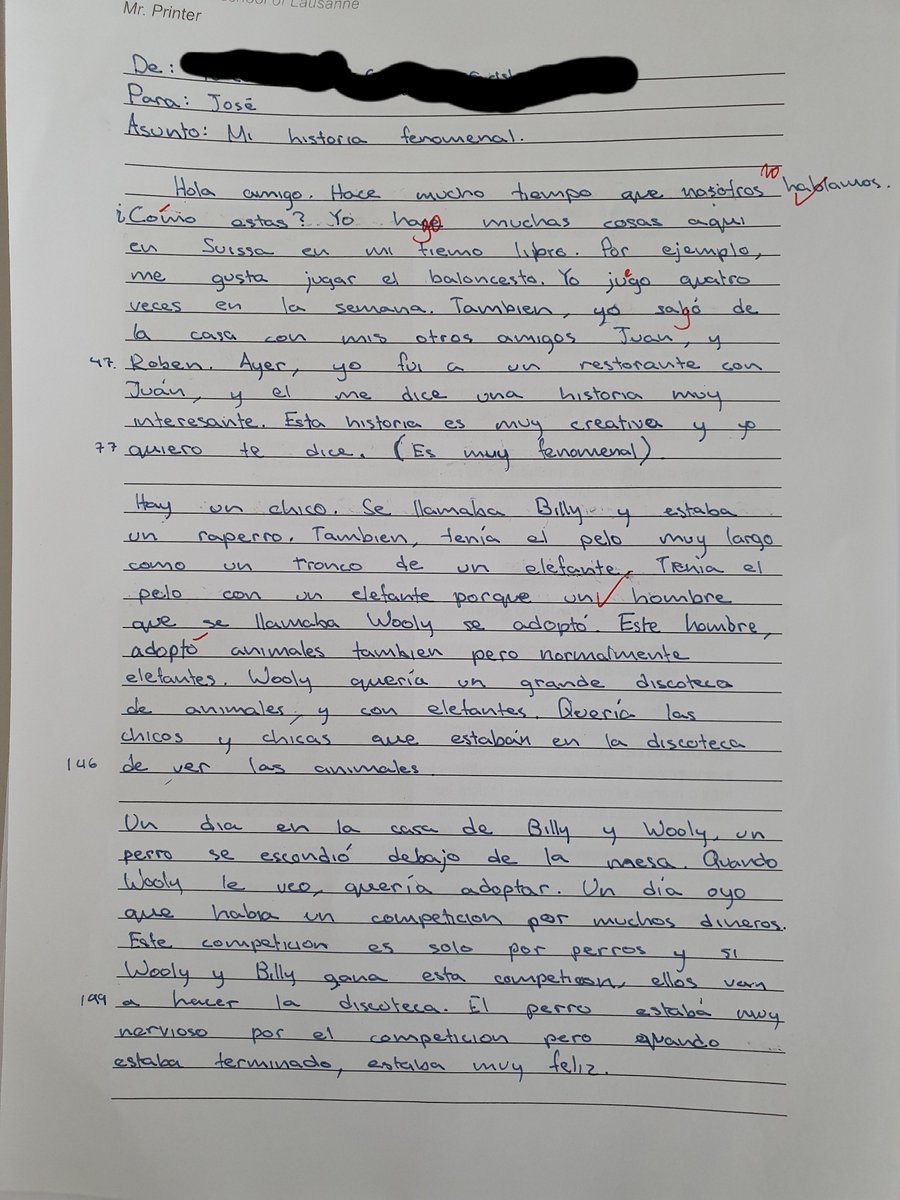 School of Lausanne
Mr. Printer
De:
Para: José
Asunto: Mi historia fenomenal.
Hola amigo. Hace mucho tiempo que nosotros no hablamos.
¿Cómo estas? Yo hago muchas cosas aqui
en Suissa en mi tiemo libre. Por ejemplo,
me gusta jugar el baloncesto. Yo juego quatro
veces en la semana. Tambien, yo salgó de
la casa con mis otros amigos Juan, y
47. Roben. Ayer, yo fui a un restorante con
Juán, y el me dice una historia muy
interesante. Esta historia es muy creativa y yo
77 quiero te dice. (Es muy fenomenal).
Hay un chico. Se llamaba Billy y estaba
un raperro. Tambien, tenía el pelo muy largo
como un tronco de un elefante. Tenia el
pelo con un elefante porque un hombre
que se llamaba Wooly se adoptó. Este hombre,
adoptó animales tambien pero normalmente
elefantes. Wooly quería un grande discoteca
de animales, y con elefantes. Quería las
chicos y chicas que estabán en la discoteca
146 de ver las animales.
Un dia en la casa de Billy y Wooly, un
perro se escondió debajo de la mesa. Quando
Wooly le veo, quería adoptar. Un día oyo
que habia un competicion por muchos dineros.
Este competicion es solo por perros y si
Wooly y Billy gana esta competicon, ellos van
199 a hacer la discoteca. El perro estabá muy
nervioso por el competicion pero quando
estaba terminado, estaba muy feliz.